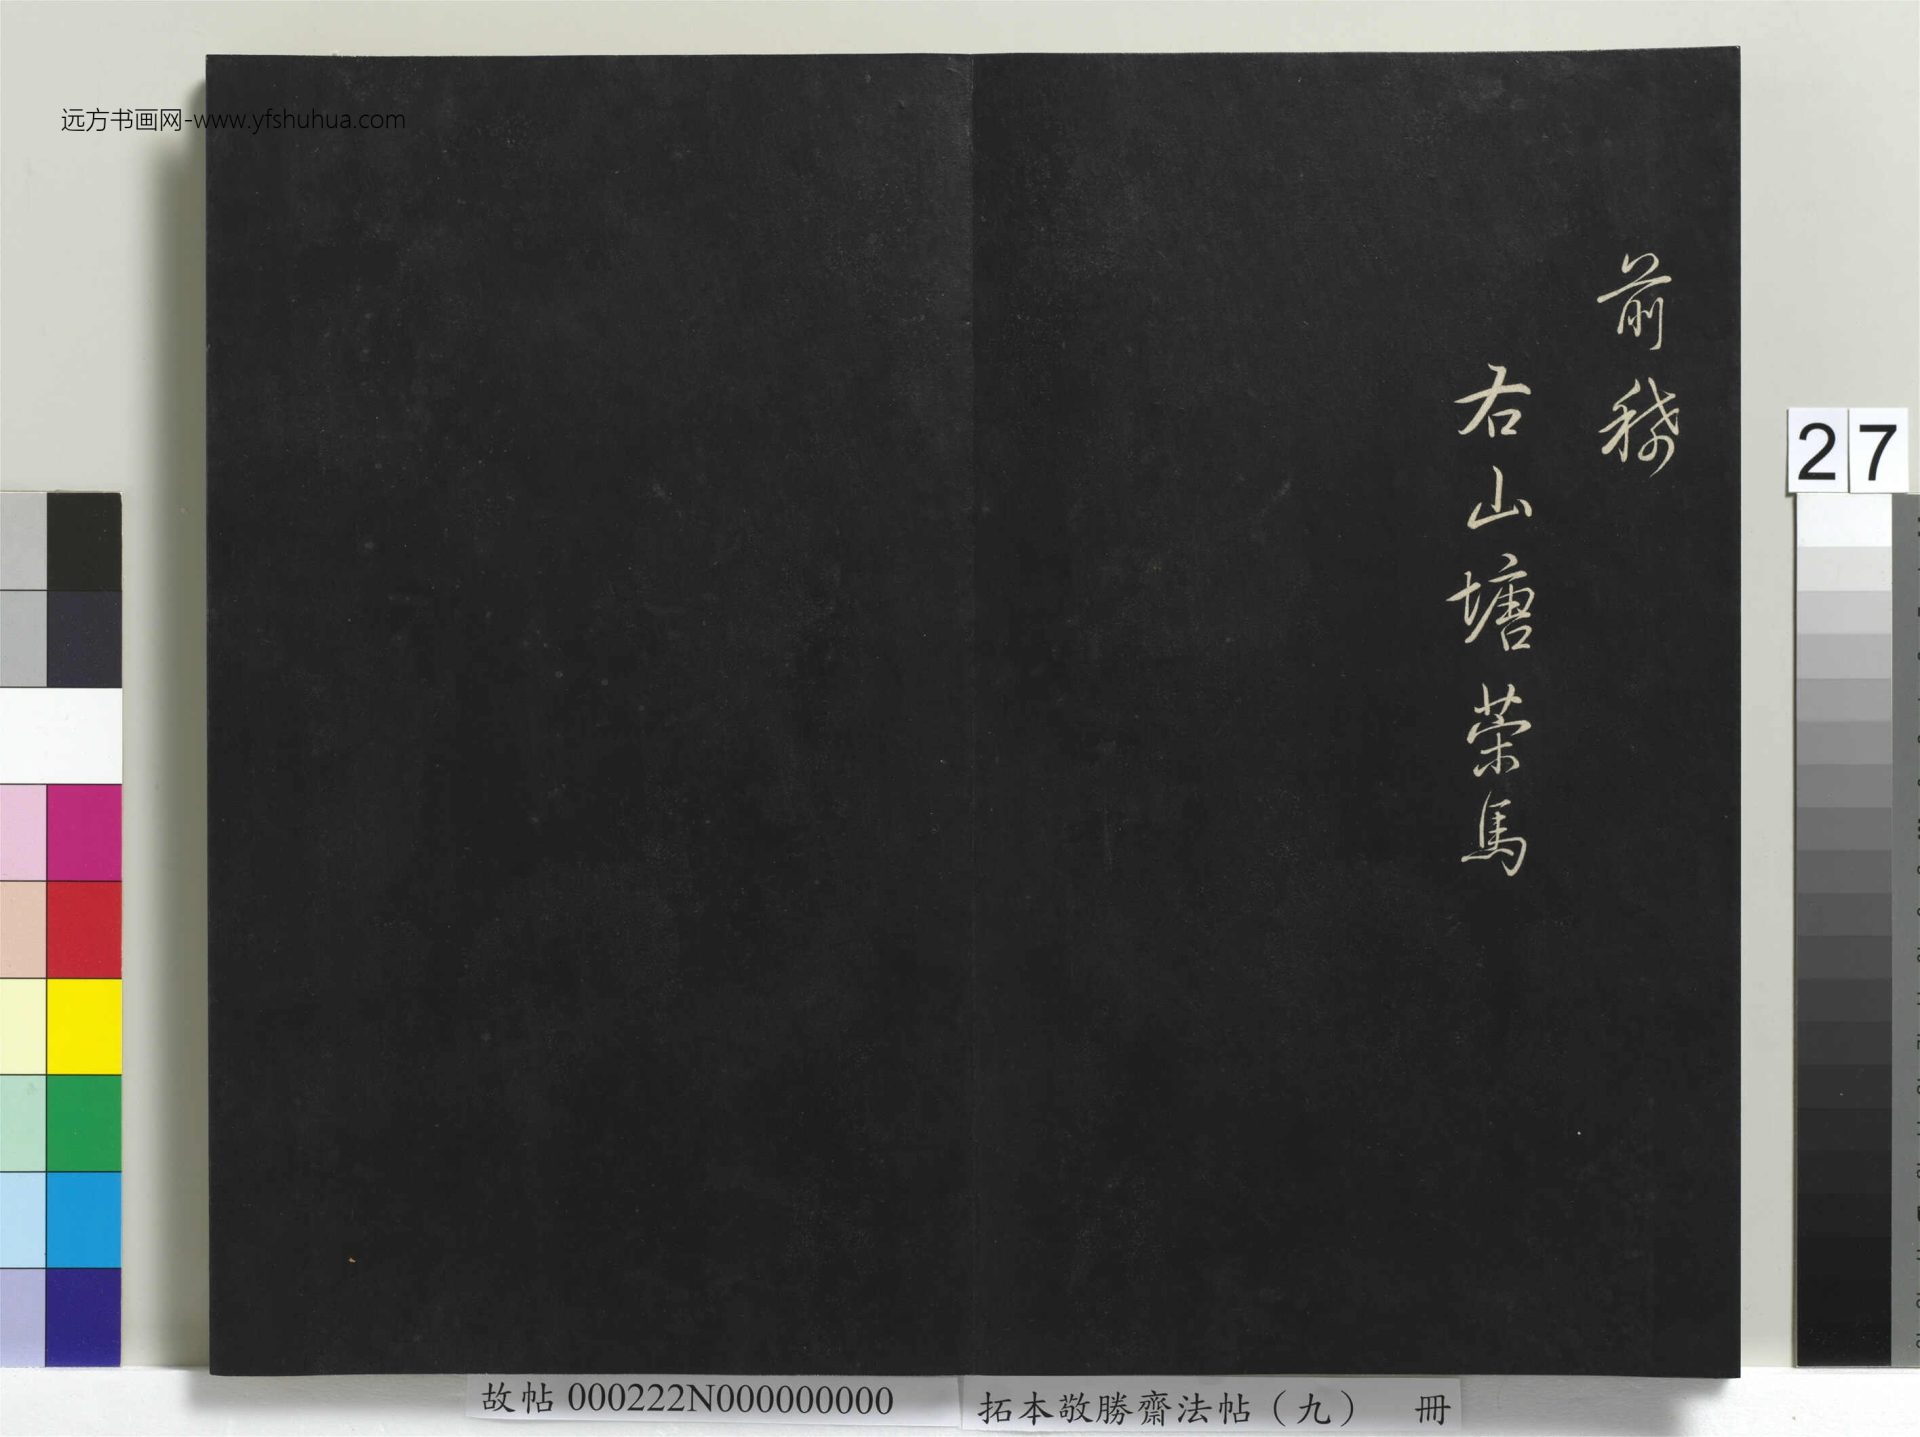 远方书画网-www.yfshuhua.com
前
右山塘策馬
27
故帖 000222N000000000
拓本敬勝齋法帖（九） 冊